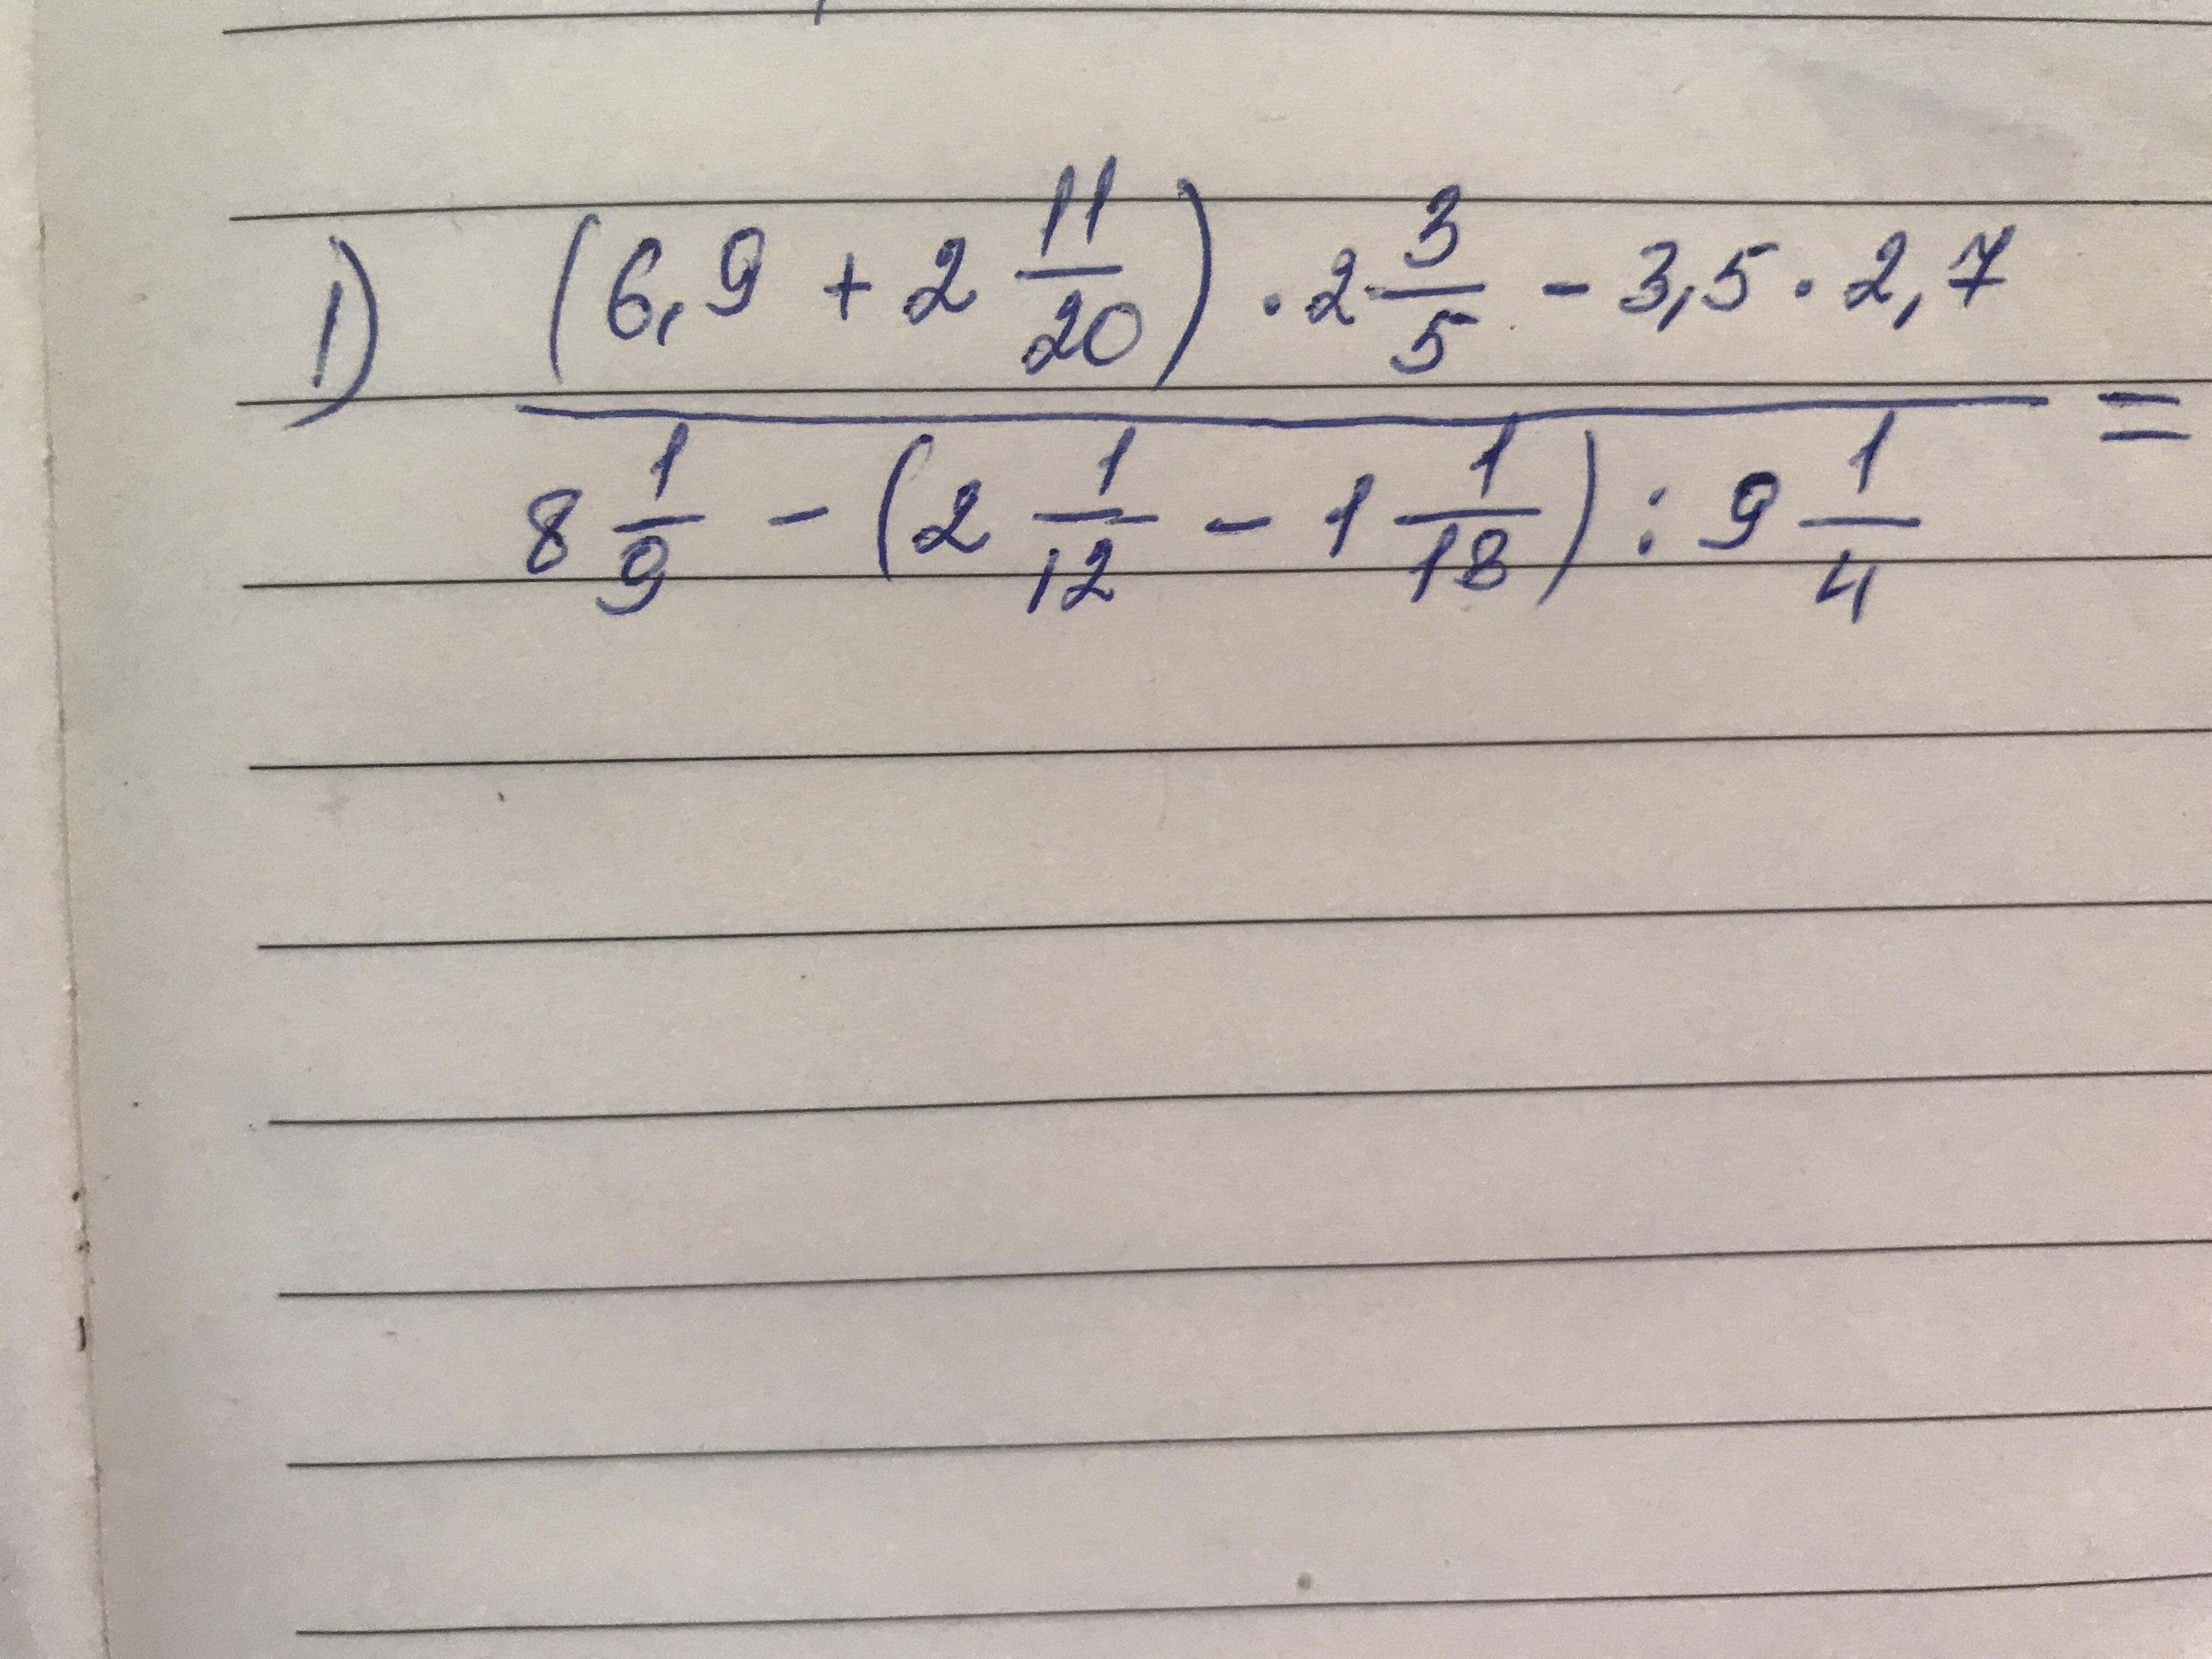 1) (6,9 + 2 11/20) · 2 3/5 - 3,5 · 2,7
=
8 1/9 - (2 1/12 - 1 1/18) : 9 1/4